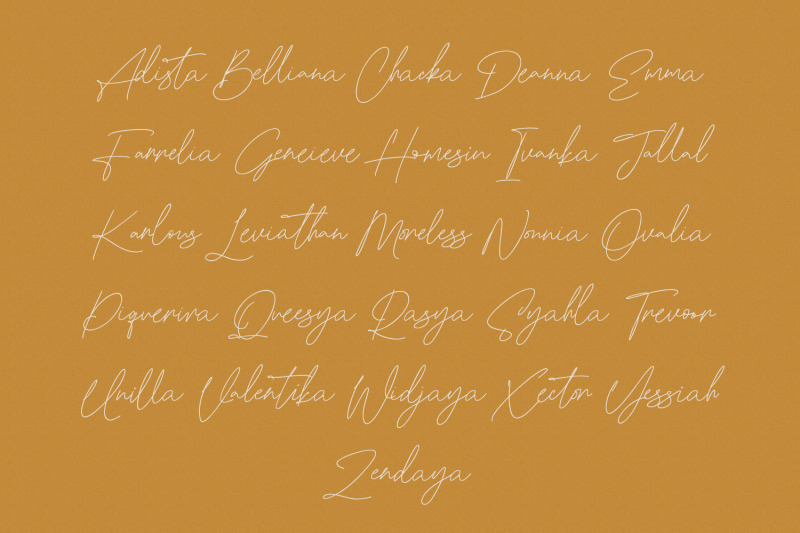 Adista Belliana Chacka Deanna Emma
Farrelia Geneieve Homesin Ivanka Jallal
Karlous Leviathan Moreless Nonnia Ovalia
Piquerira Queesya Rasya Syahla Trevoor
Unilla Valentika Widjaya Xector Yessiah
Zendaya